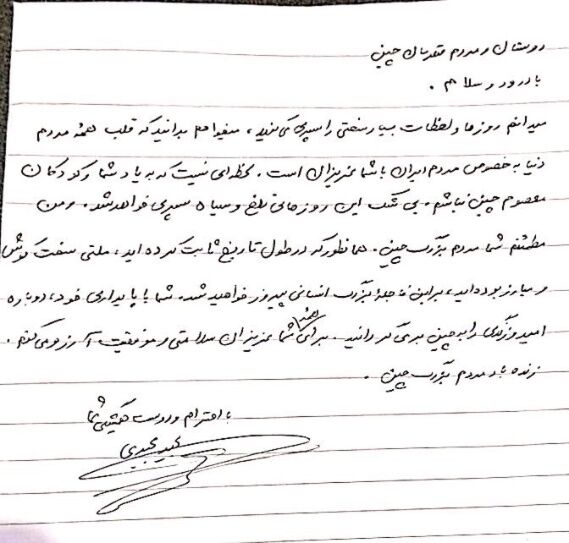 دوستان و مردم مهربان چین
با درود و سلام .
میدانم روزها و لحظات بسیار سختی را سپری می‌کنید، میخواهم بدانید که قلب همه مردم
دنیا به خصوص مردم ایران با شما عزیزان است . لحظه‌ای نیست که به یاد شما و کودکان
معصوم چین نباشم . بی شک این روزهای تلخ و سیاه سپری خواهد شد . و من
مطمئنم شما مردم بزرگ چین . همانطور که در طول تاریخ ثابت کرده اید ، ملتی سخت کوش
و مبارز بوده‌اید ، بر این فاجعهٔ بزرگ انسانی پیروز خواهید شد. شما با پایداری خود، دوباره
امید و زندگی را به چین برمی گردانید . برای همه شما عزیزان سلامتی و موفقیت آرزو می‌کنم .
زنده باد مردم بزرگ چین .
با احترام و دوست همیشگی شما
مجید مجیدی